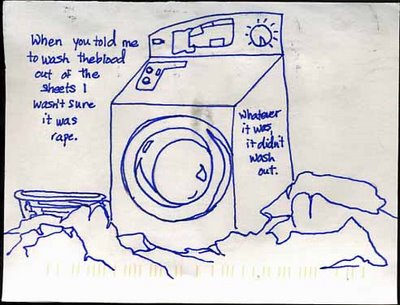 When you told me
to wash the blood
out of the
sheets I
wasn't sure
it was
rape.
Whatever
it was,
it didn't
wash
out.